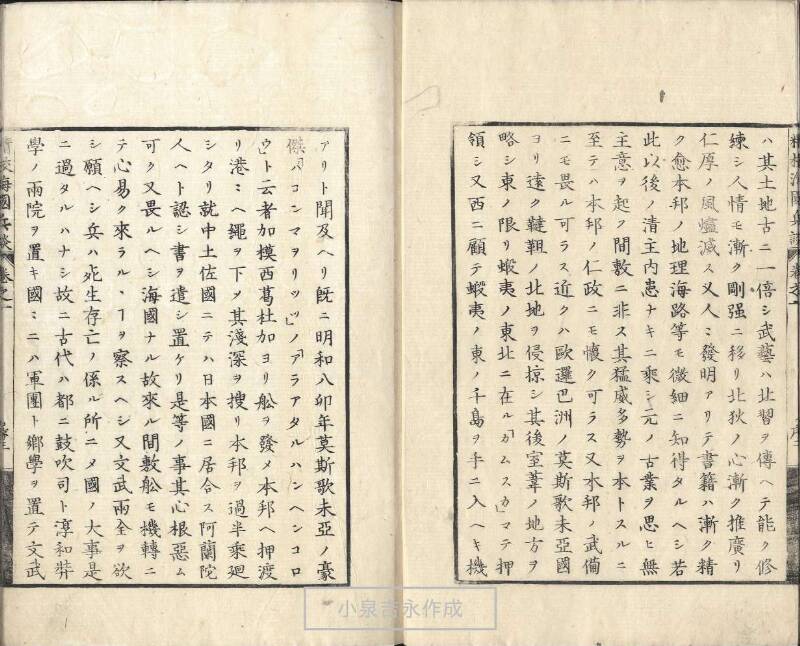 ハ其土地古ニ一倍シ武藝ハ北習ヲ傳ヘテ能ク修
練シ人情モ漸ク剛强ニ移リ北狄ノ心漸ク推廣リ
仁厚ノ風爐滅ス又人ミ發明アリテ書籍ハ漸ク精
ク愈本邦ノ地理海路等モ微細ニ知得タルヘシ若
此以後ノ清主内患ナキニ乘シ元ノ古業ヲ思ヒ無
主意ヲ起ス間敷ニ非ス其猛威多勢ヲ本トスルニ
至テハ本邦ノ仁政ニモ懷ク可ラス又本邦ノ武備
ニモ畏ル可ラス近クハ歐邏巴洲ノ莫斯歌未亞國
ヨリ遠ク韃靼ノ北地ヲ侵掠シ其後室葦ノ地方ヲ
略シ東ノ限リ蝦夷ノ東北ニ在ル「カムスカ」マテ押
領シ又西ニ顧テ蝦夷ノ東ノ千島ヲ手ニ入ヘキ機
アリト聞及ヘリ旣ニ明和八卯年莫斯歌未亞ノ豪
傑「バコンマヲリッツ」ノ「ラアタルハンヘンコロ
ウ」ト云者加模西葛杜加ヨリ舩ヲ發メ本邦ヘ押渡
リ港ミヘ繩ヲ下メ其淺深ヲ搜リ本邦ヲ過半乘廻
シタリ就中土佐國ニテハ日本國ニ居合ス阿蘭陀
人ヘト認シ書ヲ遣シ置ケリ是等ノ事其心根惡ム
可ク又畏ルヘシ海國ナル故來ル間敷舩モ機轉ニ
テ心易ク來ラルヽヿヲ察スヘシ又文武兩全ヲ欲
シ願ヘシ兵ハ死生存亡ノ係ル所ニメ國ノ大事是
ニ過タルハナシ故ニ古代ハ都ニ鼓吹司ト淳和弉
學ノ兩院ヲ置キ國ミニハ軍團ト鄕學ヲ置テ文武
海國兵談 卷之一
小泉吉永作成